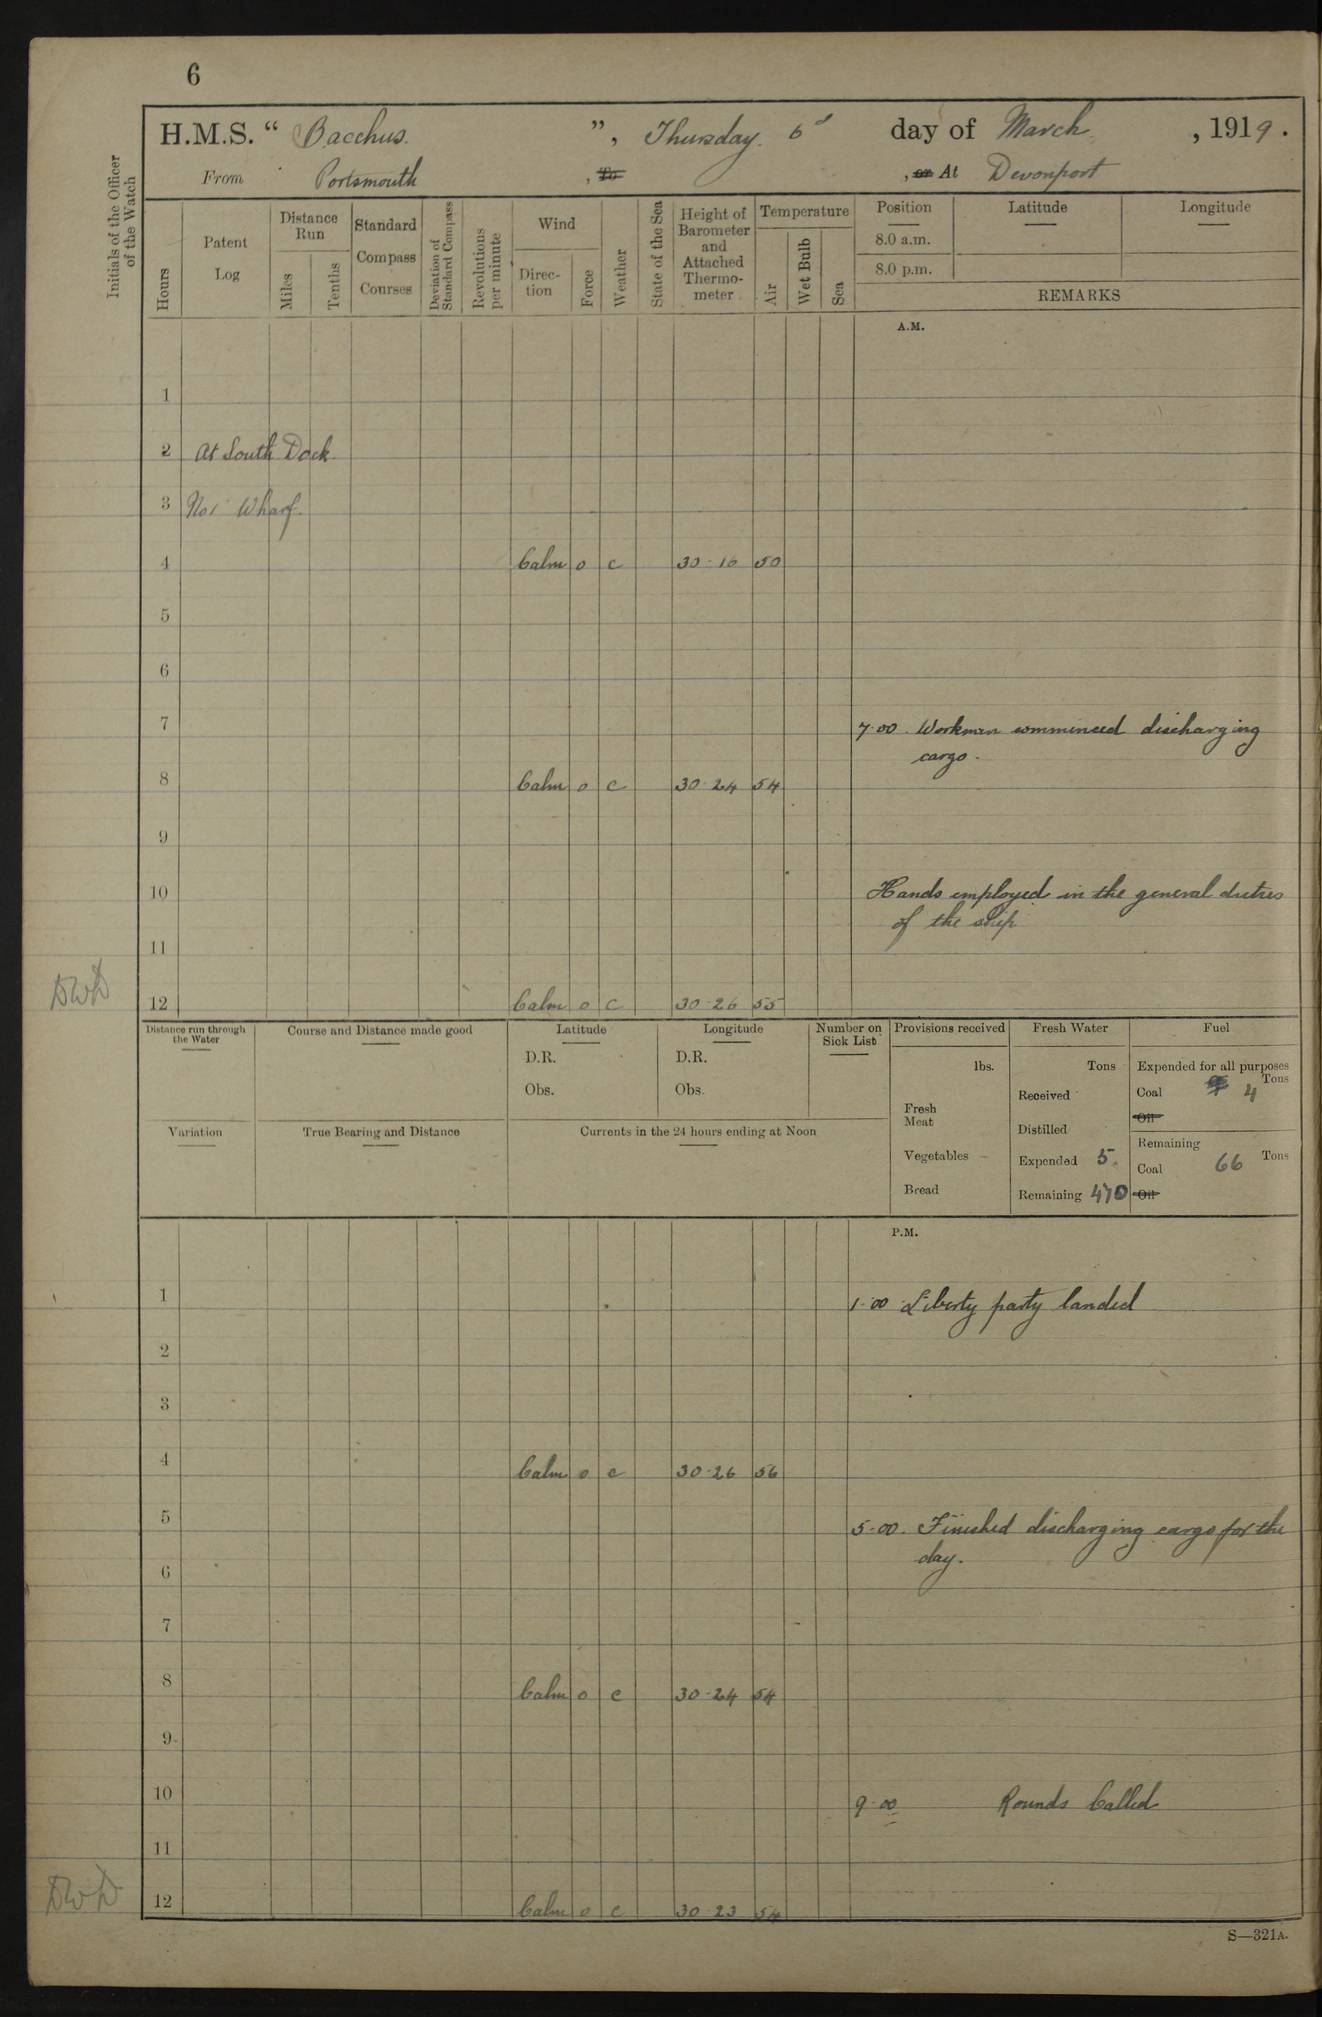 6
H.M.S. “ Bacchus. ”, Thursday. 6th day of March , 1919.
From Portsmouth , To , or At Devonport
Initials of the Officer of the Watch
Hours
Patent Log
Distance Run
Miles
Tenths
Standard Compass Courses
Deviation of Standard Compass
Revolutions per minute
Wind
Direction
Force
Weather
State of the Sea
Height of Barometer and Attached Thermometer
Temperature
Air
Wet Bulb
Sea
Position
Latitude
Longitude
8.0 a.m.
8.0 p.m.
REMARKS
A.M.
1
2 At South Dock
3 No 1 Wharf.
4 Calm 0 c 30·16 50
5
6
7 7·00 Workmen comminced discharging
cargo.
8 Calm 0 c 30·24 54
9
10 Hands employed in the general duties
of the ship
11
DWD
12 Calm 0 c 30·26 55
Distance run through the Water
Course and Distance made good
Latitude
D.R.
Obs.
Longitude
D.R.
Obs.
Number on Sick List
Provisions received
lbs.
Fresh Meat
Vegetables
Bread
Fresh Water
Tons
Received
Distilled
Expended 5.
Remaining 470
Fuel
Expended for all purposes
Tons
Coal 4
Oil
Remaining
Tons
Coal 66
Oil
Variation
True Bearing and Distance
Currents in the 24 hours ending at Noon
P.M.
1 1·00 Liberty party landed
2
3
4 Calm 0 c 30·26 56
5 5·00. Finished discharging cargo for the
day.
6
7
8 Calm 0 c 30·24 54
9
10 9·00 Rounds Called
11
DWD
12 Calm 0 c 30·23 54
S—321A.